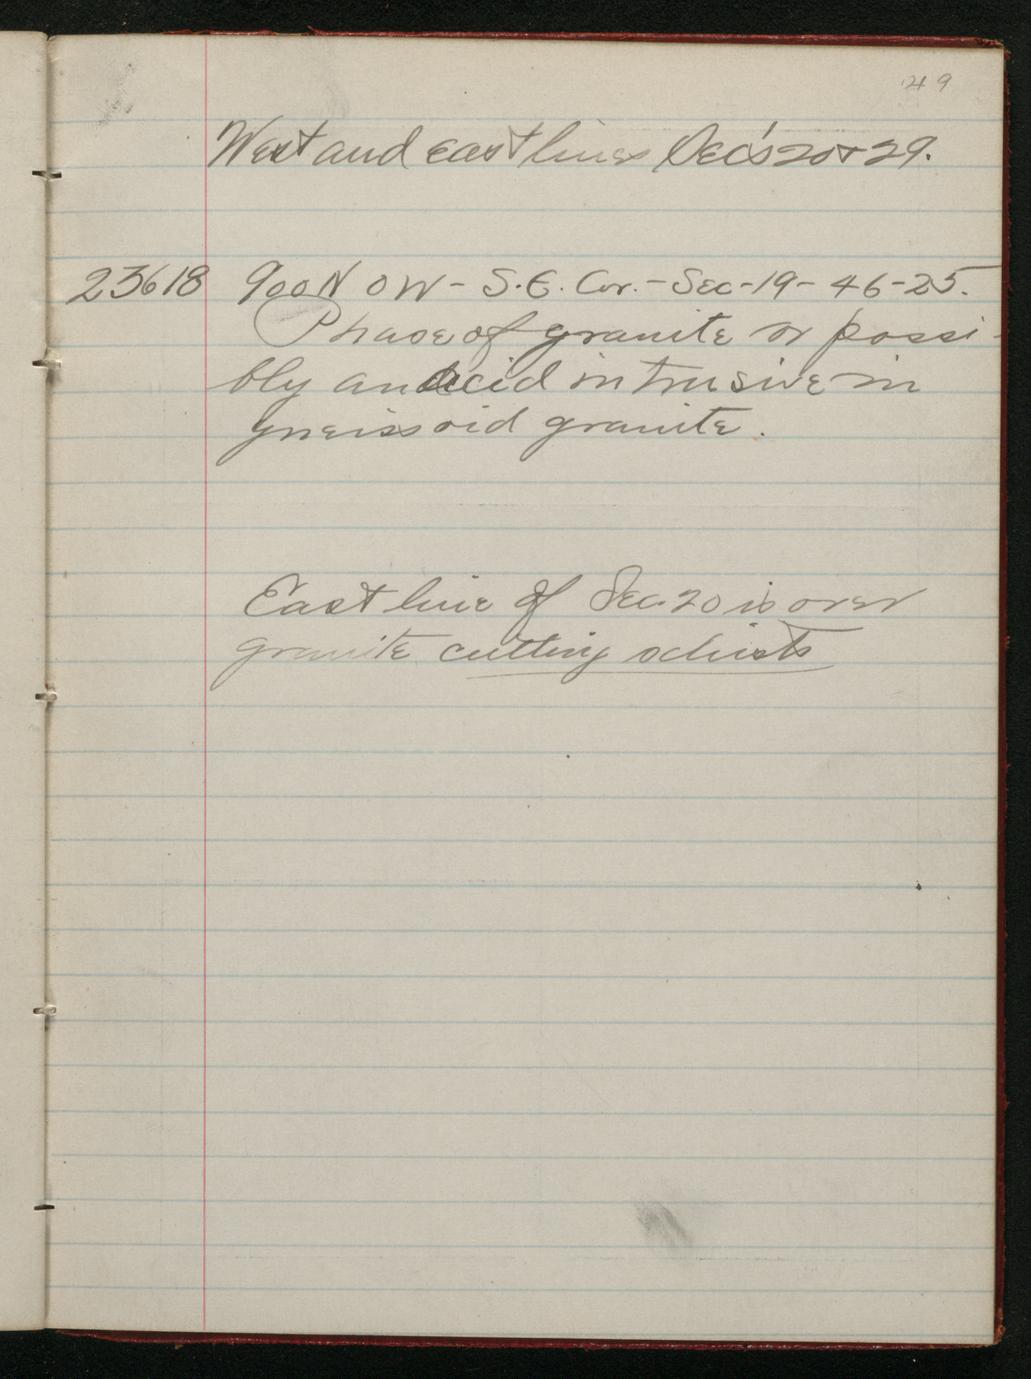 49
West and east lines Sec's 20 & 29.
23618 900N 0W - S.E. Cor. - Sec-19- 46-25.
Phase of granite or possi-
bly an acid intrusive in
gneissoid granite.
East line of Sec. 20 is over
granite cutting schists